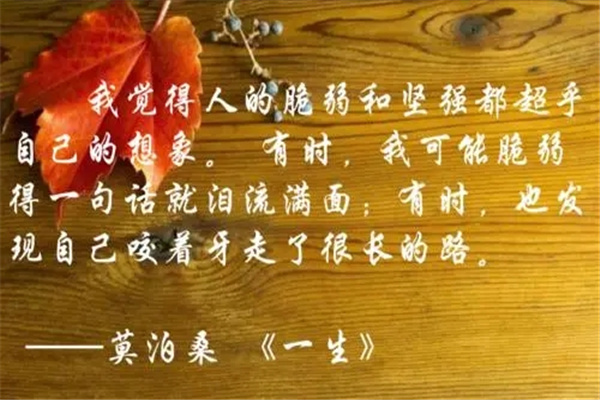 我觉得人的脆弱和坚强都超乎
自己的想象。 有时，我可能脆弱
得一句话就泪流满面；有时，也发
现自己咬着牙走了很长的路。
——莫泊桑 《一生》